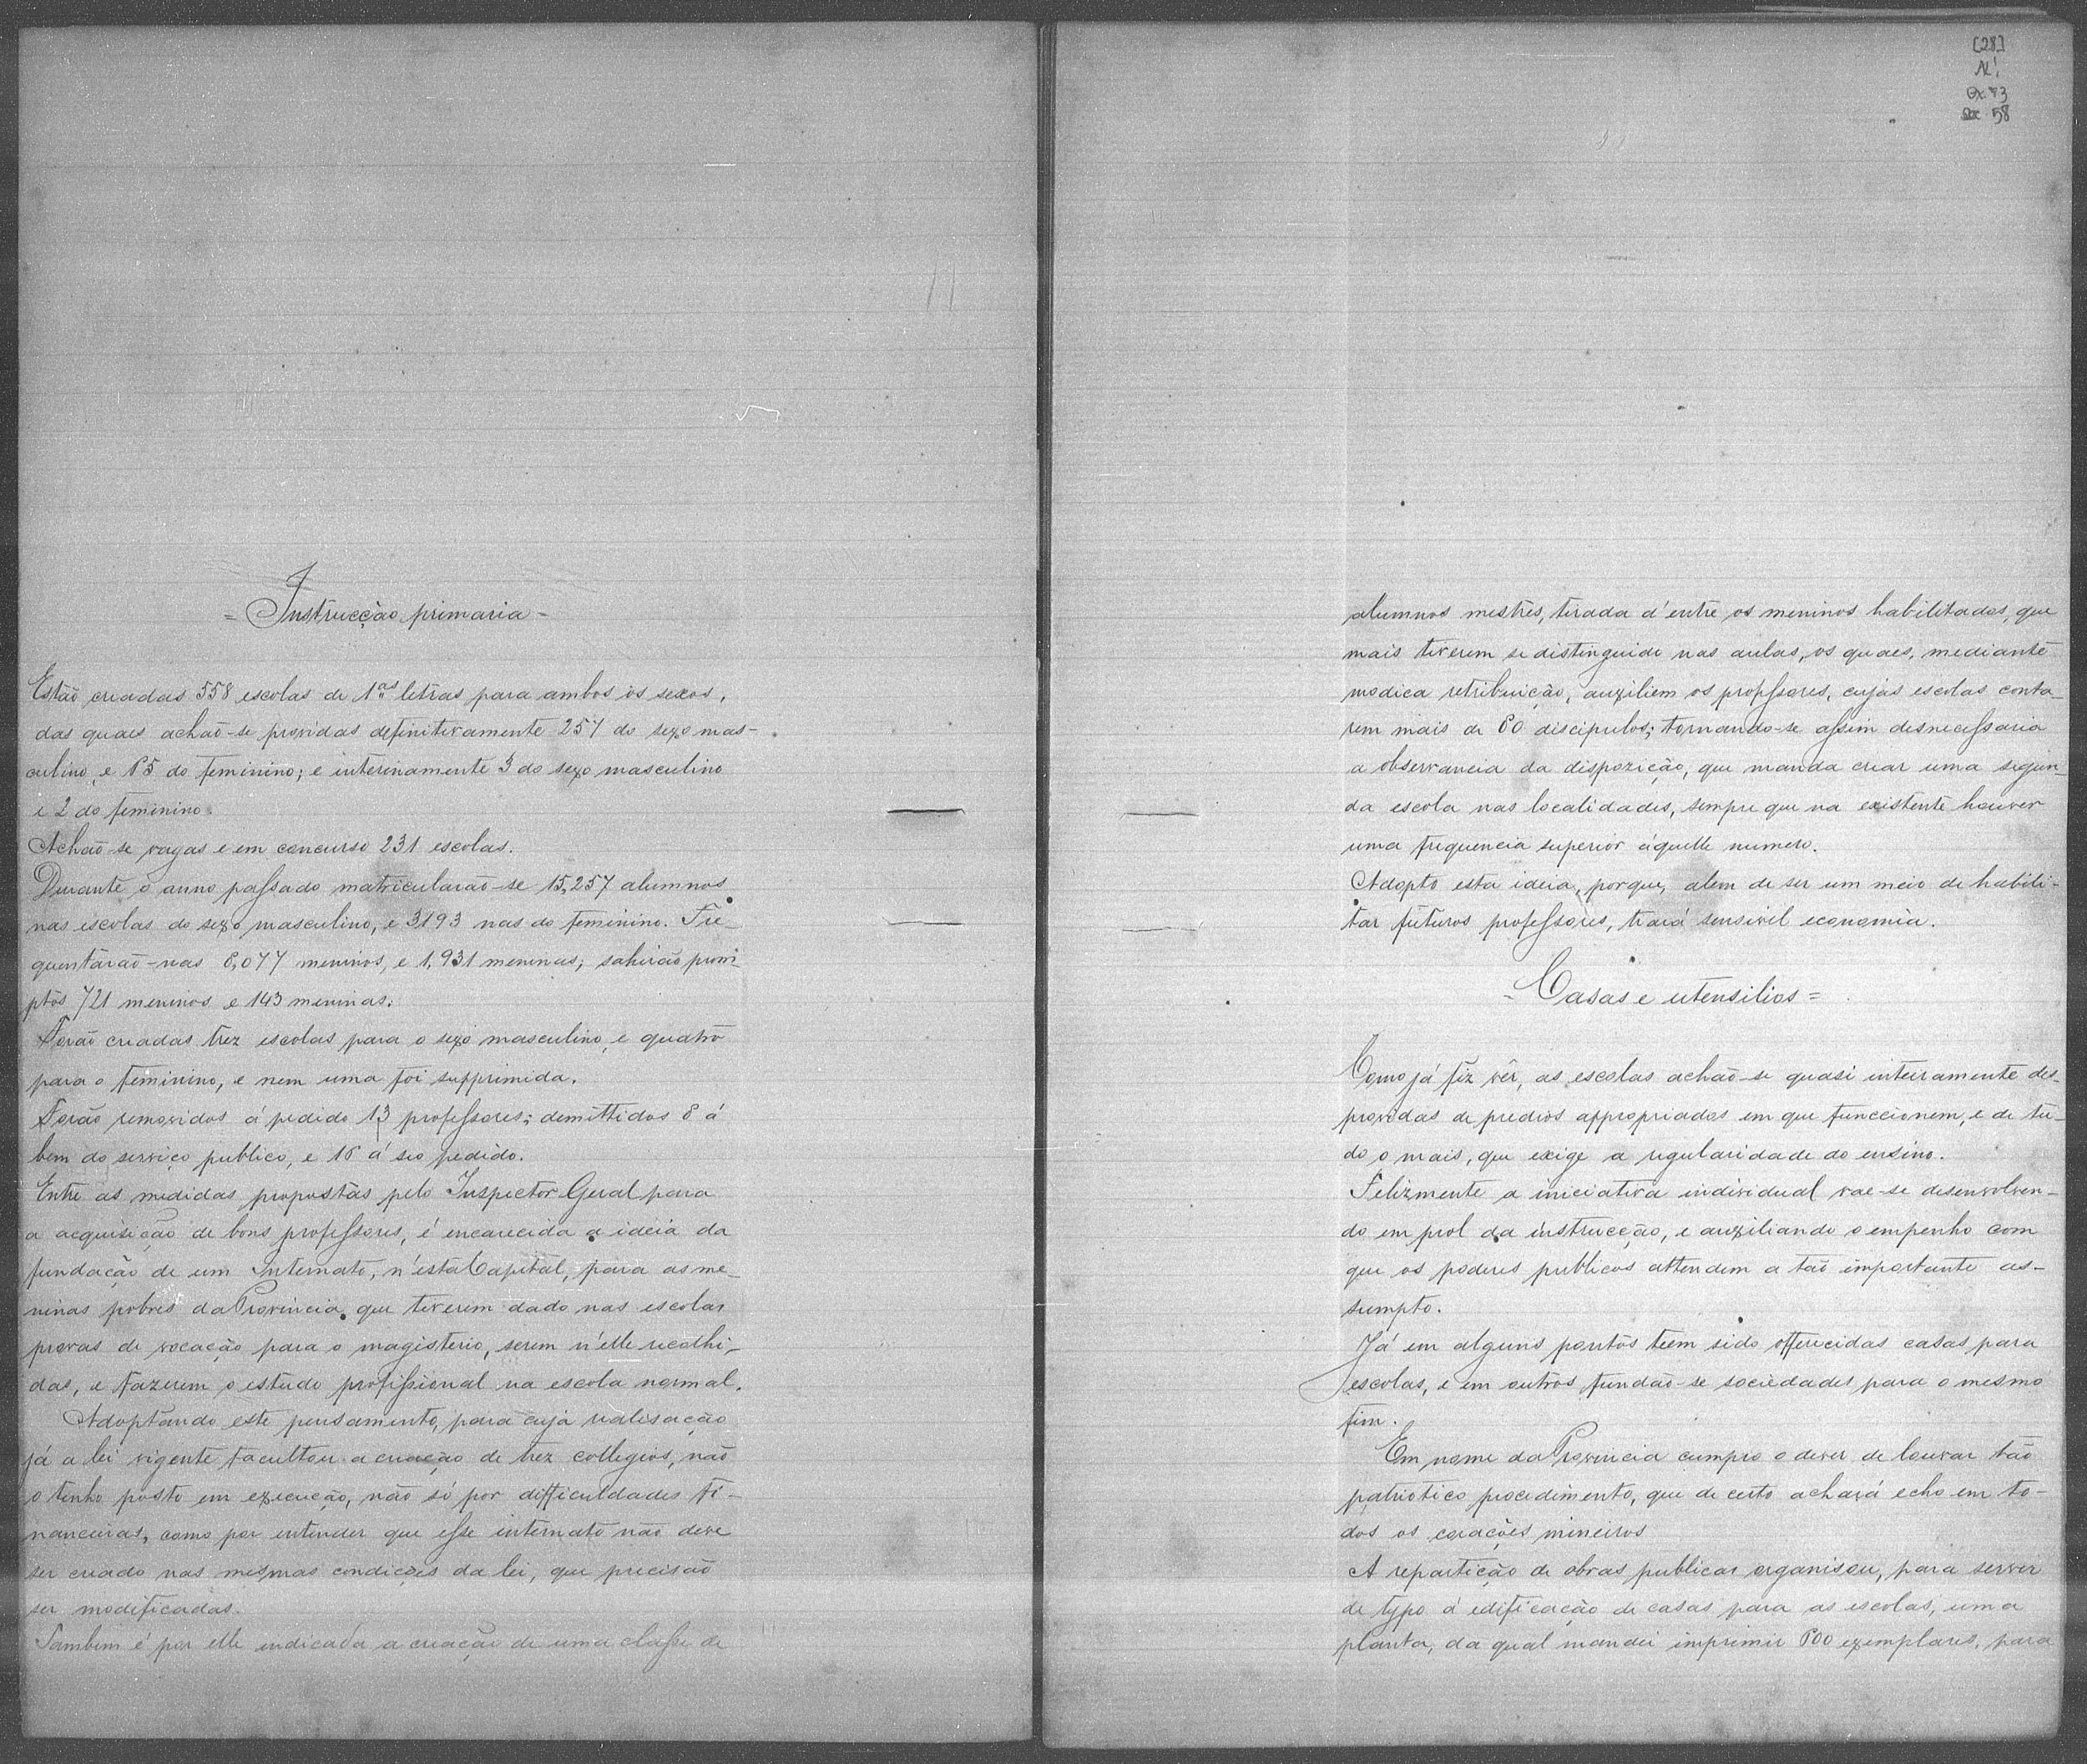 = Instrucção primaria =
Estão creadas 558 escolas de 1as letras para ambos os sexos,
das quaes achão-se providas definitivamente 257 do sexo mas-
culino, e 65 do feminino; e interinamente 3 do sexo masculino
e 2 do feminino.
Achão-se vagas e em concurso 231 escolas.
Durante o anno passado matricularão-se 15,257 alumnos
nas escolas do sexo masculino, e 3193 nas do feminino. Fre-
quentarão-nas 8,077 meninos, e 1,931 meninas; sahirão prom-
ptos 721 meninos e 143 meninas.
Forão creadas trez escolas para o sexo masculino, e quatro
para o feminino, e nem uma foi supprimida.
Forão removidos á pedido 13 professores; demittidos 8 á
bem do serviço publico, e 16 á seo pedido.
Entre as medidas propostas pelo Inspector Geral para
a acquisição de bons professores, é encarecida a ideia da
fundação de um Internato, n'esta Capital, para as me-
ninas pobres da Provincia, que tiverem dado nas escolas
provas de vocação para o magisterio, serem n'elle recolhi-
das, e fazerem o estudo profissional na escola normal.
Adoptando este pensamento, para cuja realisação
já a lei vigente facultou a creação de trez collegios, não
o tenho posto em execução, não só por difficuldades fi-
nanceiras, como por entender que esse internato não deve
ser creado nas mesmas condições da lei, que precisão
ser modificadas.
Tambem é por elle indicada a creação de uma classe de
[28]
58
alumnos mestres, tirada d'entre os meninos habilitados, que
mais tiverem se distinguido nas aulas, os quaes, mediante
modica retribuição, auxiliem os professores, cujas escolas conta-
rem mais de 60 discipulos; tornando-se assim desnecessaria
a observancia da dispozição, que manda crear uma segun-
da escola nas localidades, sempre que na existente houver
uma frequencia superior áquelle numero.
Adopto esta ideia, porque, alem de ser um meio de habili-
tar futuros professores, trará sensivel economia.
= Casas e utensilios =
Como já fiz vêr, as escolas achão-se quasi inteiramente des-
providas de predios appropriados em que funccionem, e de tu-
do o mais, que exige a regularidade do ensino.
Felizmente a iniciativa individual vae-se desenvolven-
do em prol da instrucção, e auxiliando o empenho com
que os poderes publicos attendem a tão importante as-
sumpto.
Já em alguns pontos teem sido offerecidas casas para
escolas, e em outros fundão-se sociedades para o mesmo
fim.
Em nome da Provincia cumpro o dever de louvar tão
patriotico procedimento, que de certo achará echo em to-
dos os corações mineiros
A repartição de obras publicas organisou, para servir
de typo á edificação de casas para as escolas, uma
planta, da qual mandei imprimir 600 exemplares, para